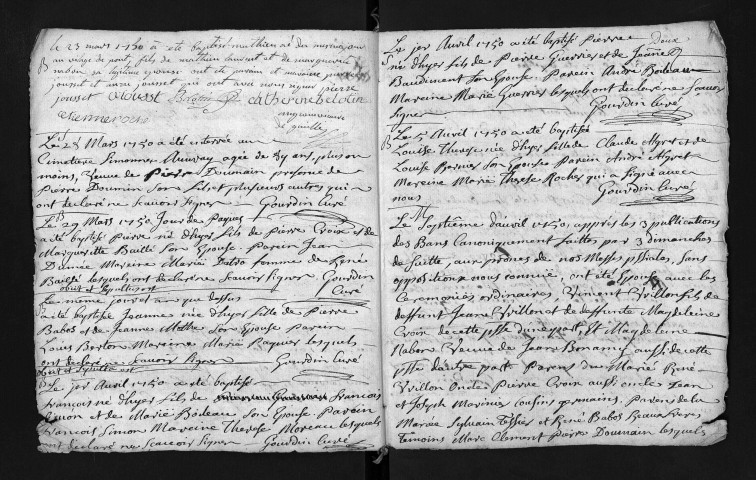 le 23 mars 1750 à été baptisé mathieu né du mesme jour
au vilage de pont, fils de mathieu laurent et de marguerite
B
jousset et anne jousset qui ont avec nous signé pierre
jousset catherine belotin
etienne
Le 28 Mars 1750 a été enterrée au
Cimetiere Simonne Meunay agée de 84 ans, plus ou
moins, Veuve de Pierre Doumain presence de
Pierre Doumain son fils et plusieurs autres qui
ont declaré ne scavoir signer Gourdin Curé
B
Le 29 Mars 1750 Jour de Paques
a été baptisé Pierre né d'hyer fils de Pierre Croix et de
Marguerite Baillé son Epouse Parein Jean
Damée Mareine Marie Datro femme de René
Baillé lesquels ont declaré ne scavoir signer Gourdin
obiit et sepultus est Curé
Le meme jour et an que dessus
a été baptisée Jeanne née d'hyer fille de Pierre
Babos et de Jeanne Mothe son Epouse Parein
Louis Berton Mareine Marie Paquer lesquels
ont declaré ne scavoir signer Gourdin Curé
obiit et sepulta est
Le 1er Avril 1750 a été baptisé
francois né d'hyer fils de francois
Simon et de Marie Bodeau son Epouse Parein
francois Simon Mareine Therese Moreau lesquels
ont declaré ne scavoir signer Gourdin Curé
deux
Le 1er Avril 1750 a été baptisé Pierre
né d'hyer fils de Pierre Guerrier et de Jeanne
Baudiment son Epouse Parein André Bodeau
Mareine Marie Guerrier lesquels ont declaré ne scavoir
signer Gourdin Curé
B
Le 5 Avril 1750 a été baptisée
Louise Therese née d'hyer fille de Claude Mgret et de
Louise Bernier son Epouse Parein André Mgret
Mareine Marie Therese Rocher qui a signé avec
nous Gourdin Curé
M
Le Septième d'avril 1750, apprès les 3 publications
des Bans Canoniquement faittes par 3 dimanches
de suitte, aux prônes de nos Messes pssiales, sans
opposition a nous connuë, ont été Epousés avec les
Ceremonies ordinaires, Vincent Vrillon fils de
deffunt Jean Vrillon et de deffunte Magdeleine
Croix de cette psse d'une part, Et Magdeleine
Rabert Veuve de Jean Bonamy aussi de cette
psse d'autre part Parens du Marié René
Vrillon oncle Pierre Croix aussi oncle Jean
et Joseph Marinier cousins germains, Parens de la
Mariée Sylvain Tessier et René Babos Beaux freres
Temoins Marc Clement Pierre Doumain lesquels